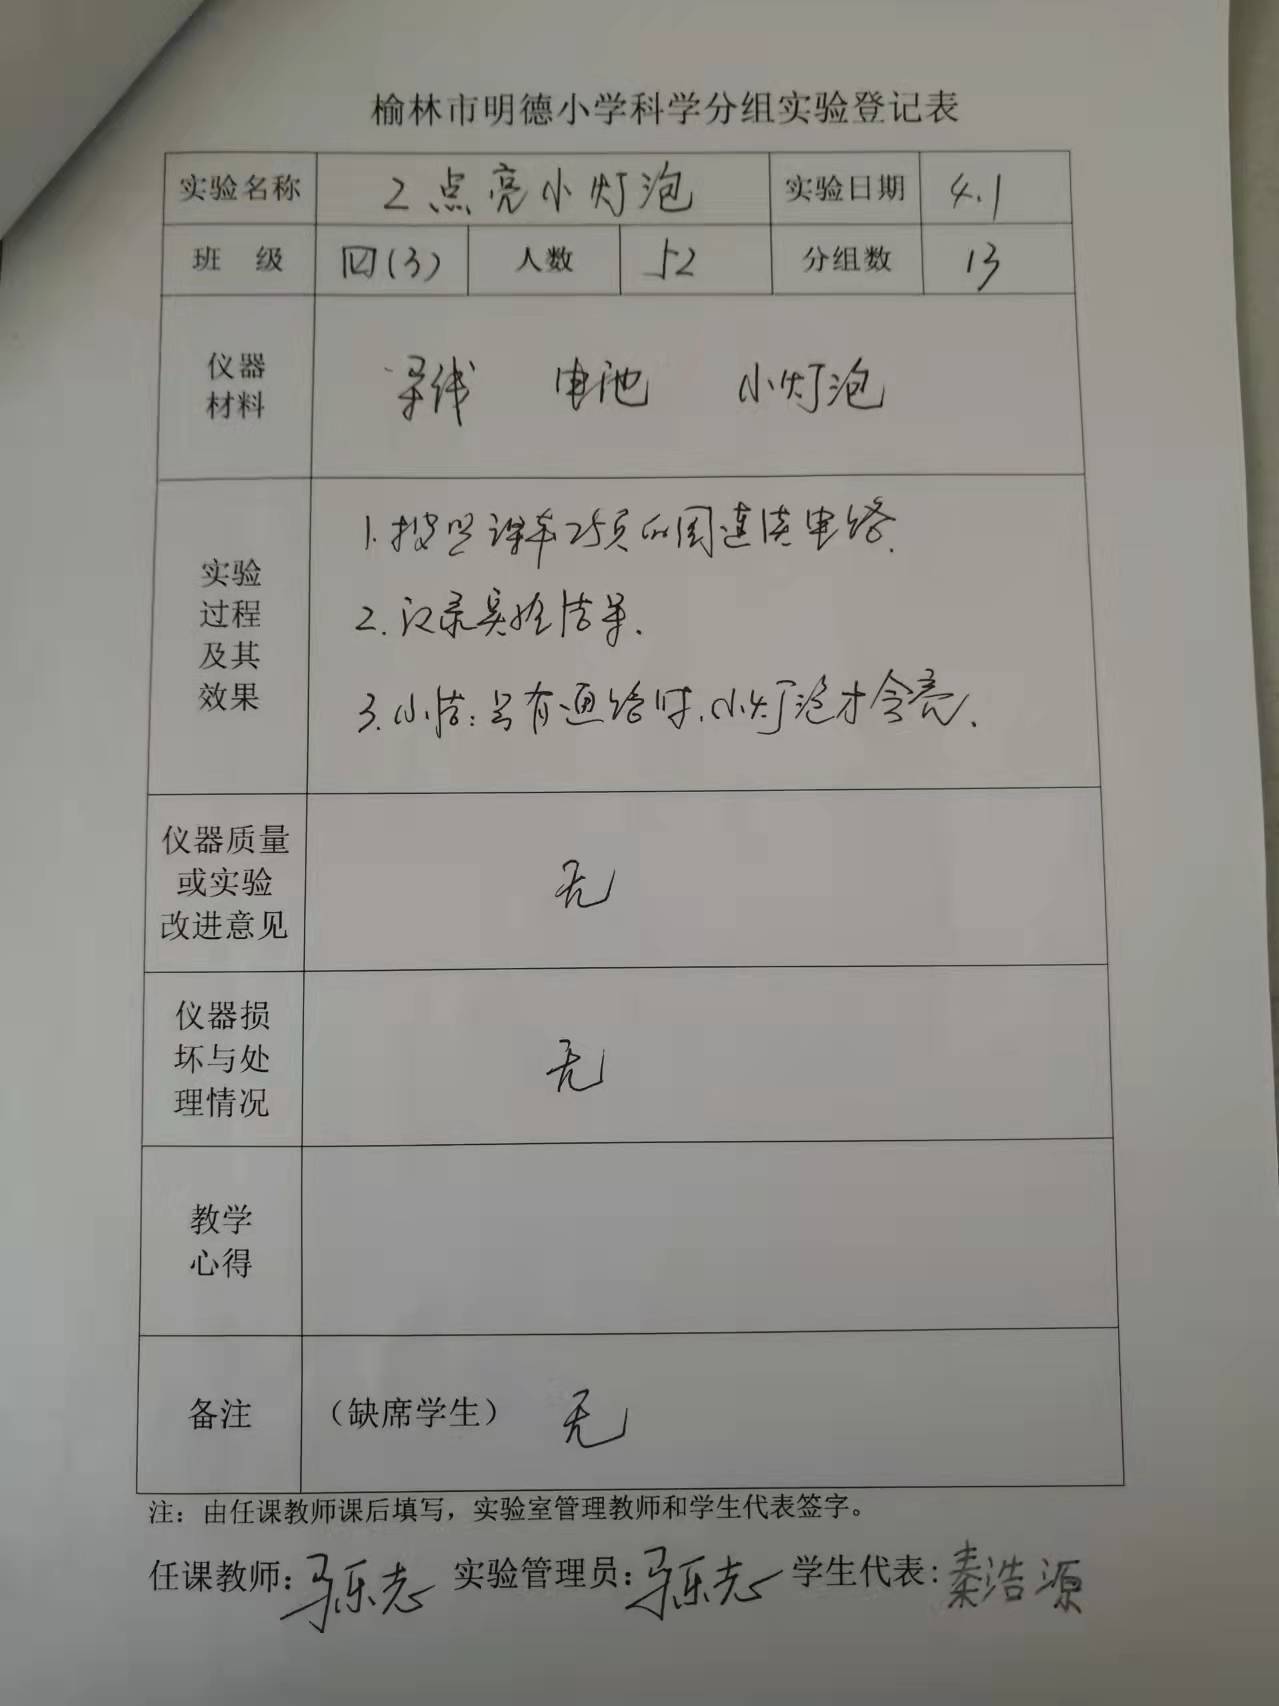 榆林市明德小学科学分组实验登记表
实验名称 2 点亮小灯泡 实验日期 4.1
班 级 四(3) 人数 52 分组数 13
仪器
材料
导线 电池 小灯泡
实验
过程
及其
效果
1. 按照课本25页的图连接电路.
2. 记录实验结果.
3. 小结: 只有通路时, 小灯泡才会亮.
仪器质量
或实验
改进意见
无
仪器损
坏与处
理情况
无
教学
心得
备注 (缺席学生) 无
注：由任课教师课后填写，实验室管理教师和学生代表签字。
任课教师: 马乐志 实验管理员: 马乐志 学生代表: 秦浩源